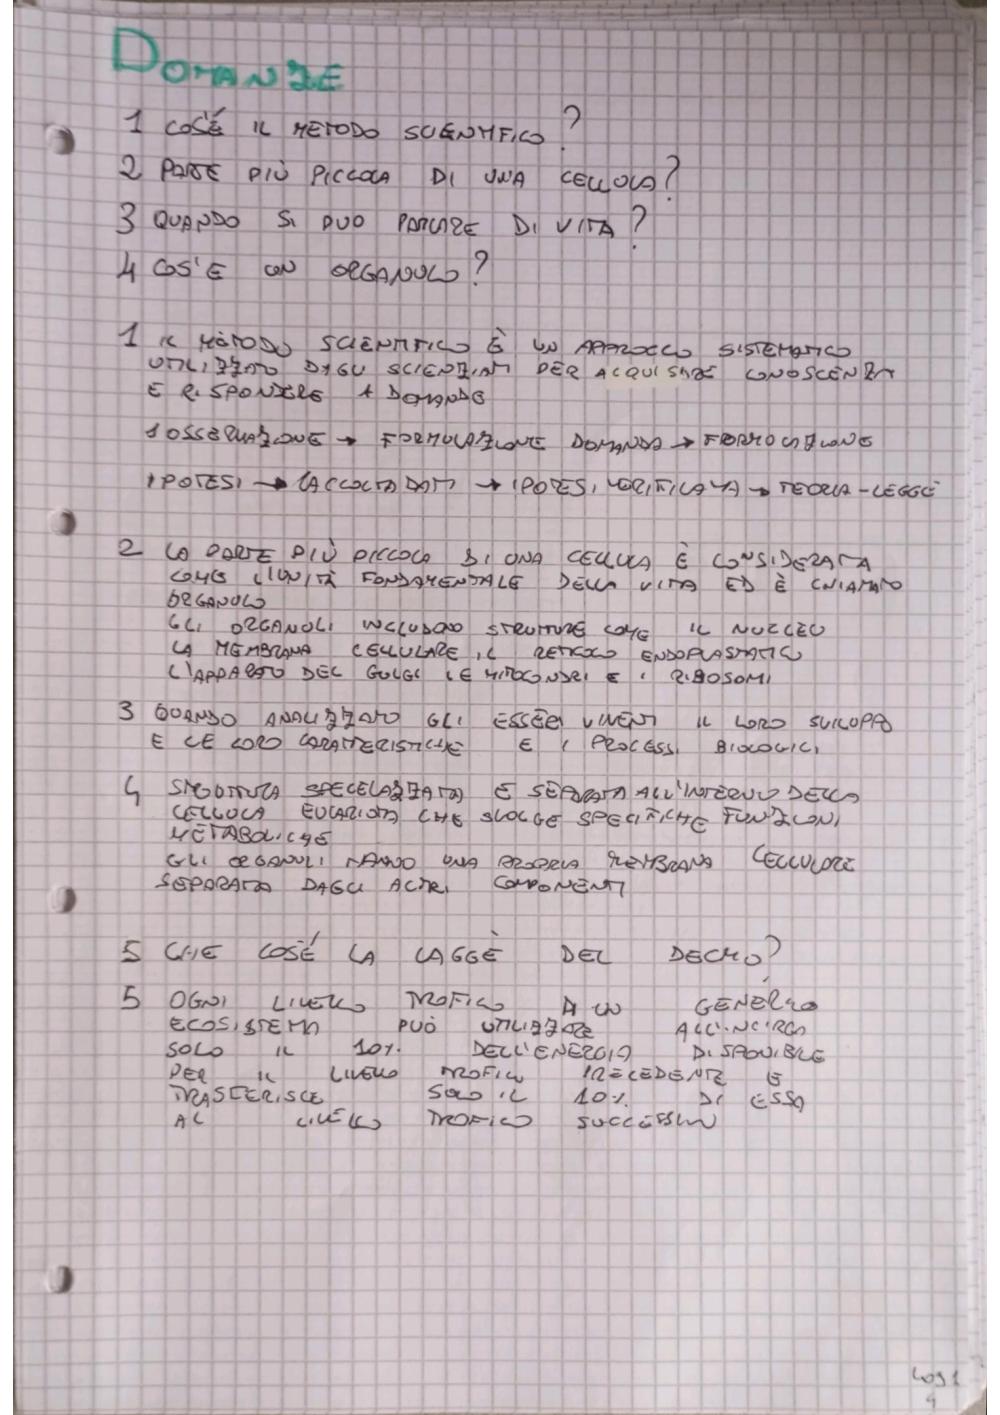 DOMANZE
1 COS'É IL METODO SCIENTIFICO?
2 PARTE PIÙ PICCOLA DI UNA CELLULA?
3 QUANDO SI PUO PARLARE DI VITA?
4 COS'E UN ORGANULO?
1 IL METODO SCIENTIFICO È UN APPROCCO SISTEMATICO
UTILIZZATO DAGLI SCIENZIATI PER ACQUISIRE CONOSCENZA
E RISPONDERE A DOMANDE
1 OSSERVAZIONE → FORMULAZIONE DOMANDA → FORMULAZIONE
IPOTESI → RACCOLTA DATI → IPOTESI VERIFICATA → TEORIA - LEGGE
2 LA PARTE PIÙ PICCOLA DI UNA CELLULA È CONSIDERATA
COME L'UNITÀ FONDAMENTALE DELLA VITA ED È CHIAMATO
ORGANULO
GLI ORGANOLI INCLUDONO STRUTTURE COME IL NUCLEO
LA MEMBRANA CELLULARE, IL RETICOLO ENDOPLASMATICO
L'APPARATO DEL GOLGI LE MITOCONDRI E I RIBOSOMI
3 QUANDO ANALIZZATO GLI ESSERI VIVENTI IL LORO SVILUPPO
E LE LORO CARATTERISTICHE E I PROCESSI BIOLOGICI
4 STRUTTURA SPECELAZZATA E SEPARATA ALL'INTERNO DELLA
CELLULA EUCARIOTA CHE SVOLGE SPECIFICHE FUNZIONI
METABOLICHE
GLI ORGANULI HANNO UNA PROPRIA MEMBRANA CELLULARE
SEPARATA DAGLI ALTRI COMPONENTI
5 CHE COSÉ LA LAGGÈ DEL DECMO?
5 OGNI LIVELLO TROFICO DI UN GENERICO
ECOSISTEMA PUÒ UTILIZZARE ALL'INCIRCA
SOLO IL 10% DELL'ENERGIA DISPONIBILE
PER IL LIVELLO TROFICO PRECEDENTE E
TRASFERISCE SOLO IL 10% DI ESSA
AL LIVELLO TROFICO SUCCESSIVO